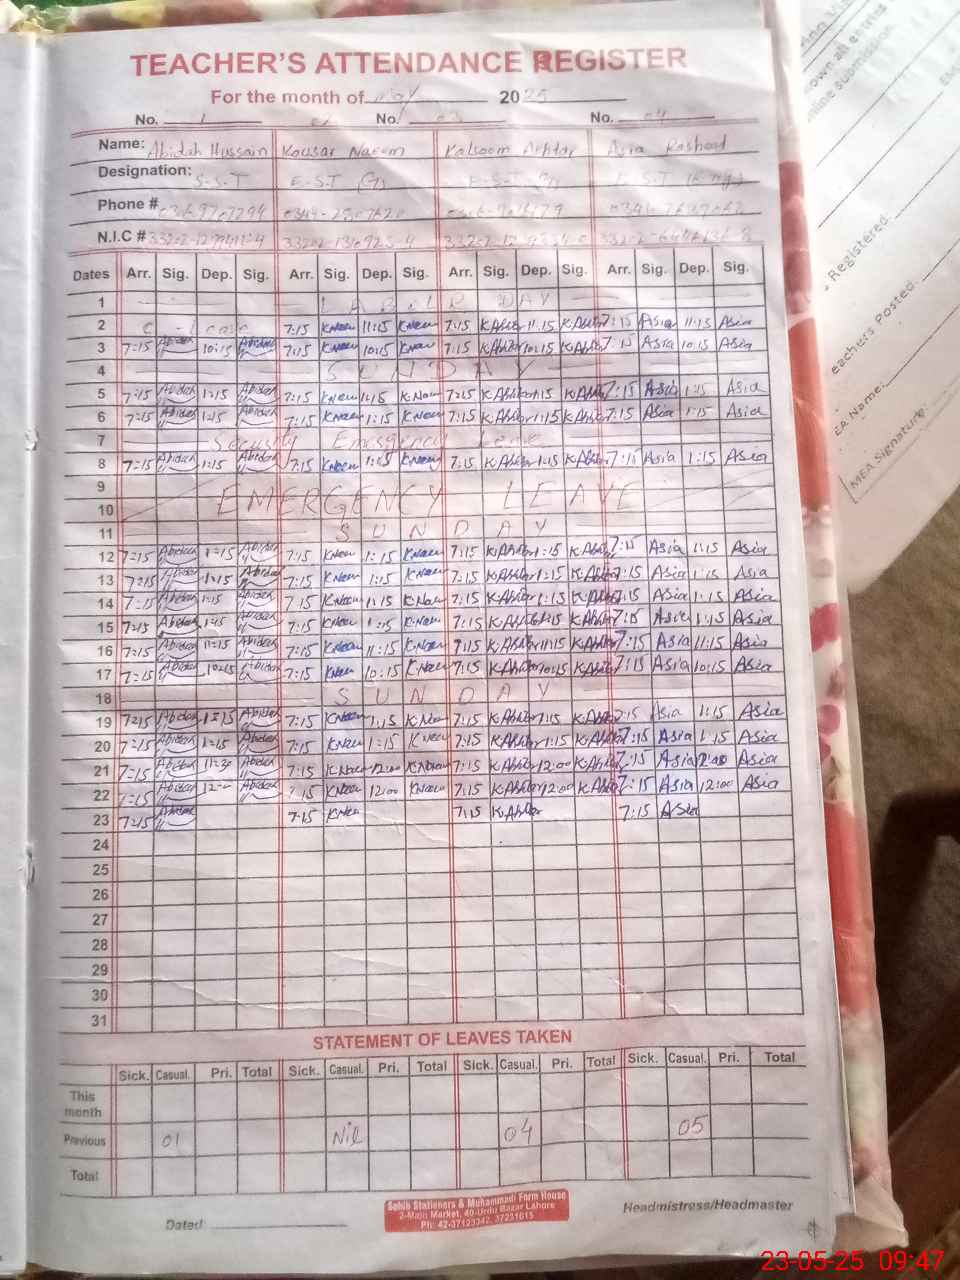 TEACHER'S ATTENDANCE REGISTER
For the month of May 2025
No. 1 02 No. 03 No. 04
Name: Abidah Hussain Kousar Naeem Kalsoom Akhtar Asia Rasheed
Designation: S.S.T E.S.T E.S.T E.S.T
Phone #
N.I.C #
Dates Arr. Sig. Dep. Sig. Arr. Sig. Dep. Sig. Arr. Sig. Dep. Sig. Arr. Sig. Dep. Sig.
1 LABOUR DAY
2 C-Leave 7:15 KNaeem 11:15 KNaeem 7:15 K.Akhtar 11:15 K.Akhtar 7:15 Asia 11:15 Asia
3 7:15 Abidah 10:15 Abidah 7:15 KNaeem 10:15 KNaeem 7:15 K.Akhtar 10:15 K.Akhtar 7:15 Asia 10:15 Asia
4 SUNDAY
5 7:15 Abidah 1:15 Abidah 7:15 KNaeem 1:15 KNaeem 7:15 K.Akhtar 1:15 K.Akhtar 7:15 Asia 1:15 Asia
6 7:15 Abidah 1:15 Abidah 7:15 KNaeem 1:15 KNaeem 7:15 K.Akhtar 1:15 K.Akhtar 7:15 Asia 1:15 Asia
7 Security Emergency Leave
8 7:15 Abidah 1:15 Abidah 7:15 KNaeem 1:15 KNaeem 7:15 K.Akhtar 1:15 K.Akhtar 7:15 Asia 1:15 Asia
9
10 EMERGENCY LEAVE
11 SUNDAY
12 7:15 Abidah 1:15 Abidah 7:15 KNaeem 1:15 KNaeem 7:15 K.Akhtar 1:15 K.Akhtar 7:15 Asia 1:15 Asia
13 7:15 Abidah 1:15 Abidah 7:15 KNaeem 1:15 KNaeem 7:15 K.Akhtar 1:15 K.Akhtar 7:15 Asia 1:15 Asia
14 7:15 Abidah 1:15 Abidah 7:15 KNaeem 1:15 KNaeem 7:15 K.Akhtar 1:15 K.Akhtar 7:15 Asia 1:15 Asia
15 7:15 Abidah 1:15 Abidah 7:15 KNaeem 1:15 KNaeem 7:15 K.Akhtar 1:15 K.Akhtar 7:15 Asia 1:15 Asia
16 7:15 Abidah 11:15 Abidah 7:15 KNaeem 11:15 KNaeem 7:15 K.Akhtar 11:15 K.Akhtar 7:15 Asia 11:15 Asia
17 7:15 Abidah 10:15 Abidah 7:15 KNaeem 10:15 KNaeem 7:15 K.Akhtar 10:15 K.Akhtar 7:15 Asia 10:15 Asia
18 SUNDAY
19 7:15 Abidah 1:15 Abidah 7:15 KNaeem 1:15 KNaeem 7:15 K.Akhtar 1:15 K.Akhtar 7:15 Asia 1:15 Asia
20 7:15 Abidah 1:15 Abidah 7:15 KNaeem 1:15 KNaeem 7:15 K.Akhtar 1:15 K.Akhtar 7:15 Asia 1:15 Asia
21 7:15 Abidah Abidah 7:15 KNaeem 12:00 KNaeem 7:15 K.Akhtar 12:00 K.Akhtar 7:15 Asia 12:00 Asia
22 7:15 Abidah Abidah 7:15 KNaeem 12:00 KNaeem 7:15 K.Akhtar 12:00 K.Akhtar 7:15 Asia 12:00 Asia
23 7:15 Abidah 7:15 KNaeem 7:15 K.Akhtar 7:15 Asia
24
25
26
27
28
29
30
31
STATEMENT OF LEAVES TAKEN
Sick. Casual. Pri. Total Sick. Casual. Pri. Total Sick. Casual. Pri. Total Sick. Casual. Pri. Total
This month
Previous 01 Nil 04 05
Total
Dated
Sohib Stationers & Muhammadi Form House
2-Main Market, 40-Urdu Bazar Lahore
Ph: 42-37123342, 37231615
Headmistress/Headmaster
own all entries
line Submission
Registered:
eachers Posted.
EA Name:
MEA Signature:
23-05-25 09:47